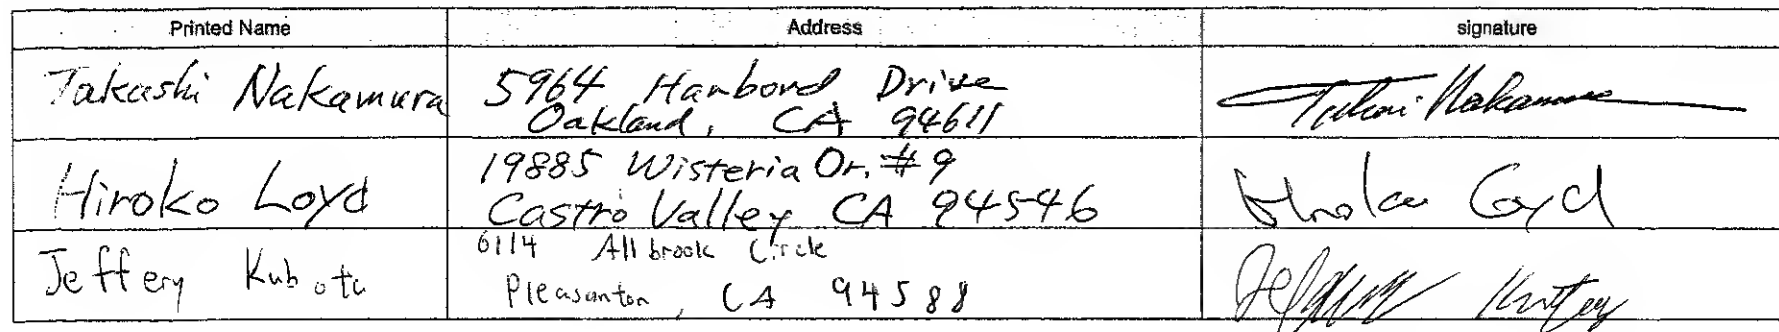 Printed Name Address signature
Takashi Nakamura 5964 Harbord Drive
Oakland, CA 94611
Hiroko Loyd 19885 Wisteria Dr. #9
Castro Valley CA 94546
Jeffery Kubota 6114 Allbrook Circle
Pleasanton, CA 94588